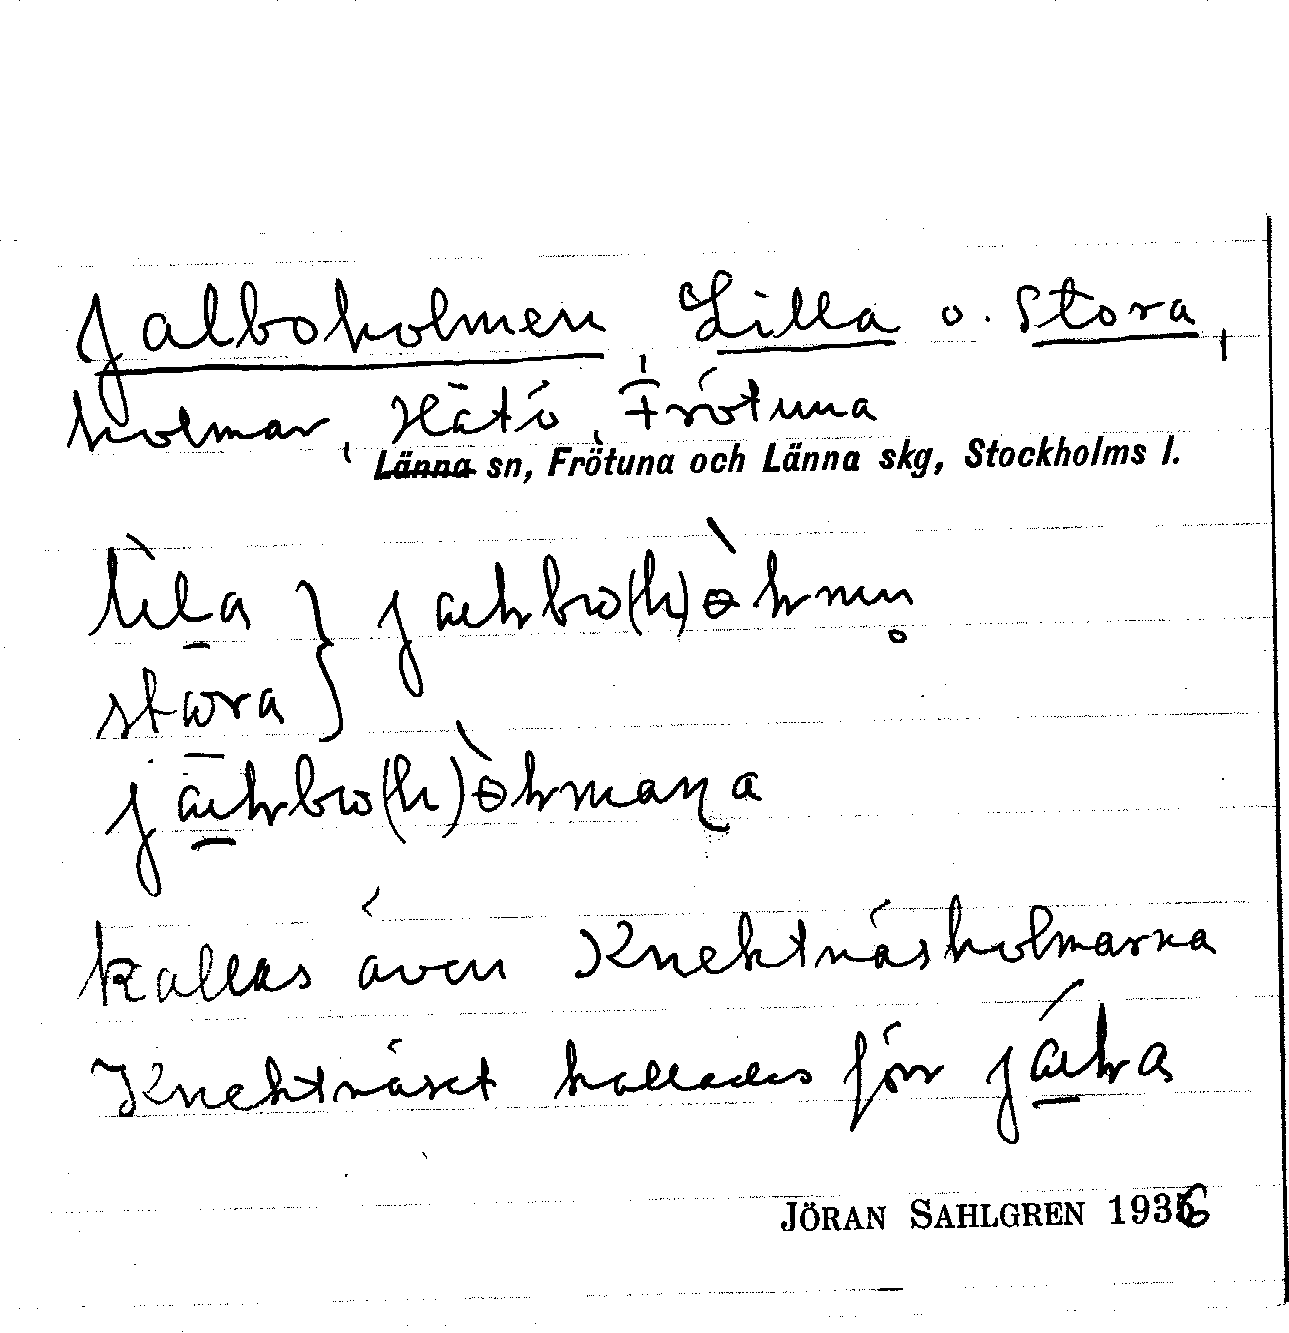 Jalboholmen, Lilla o. Stora,
holmar, Hätö, Frötuna
Länna sn, Frötuna och Länna skg, Stockholms l.
stωra
kallas även Knektnäsholmarna
Knektnäset kallades förr
JÖRAN SAHLGREN 1936